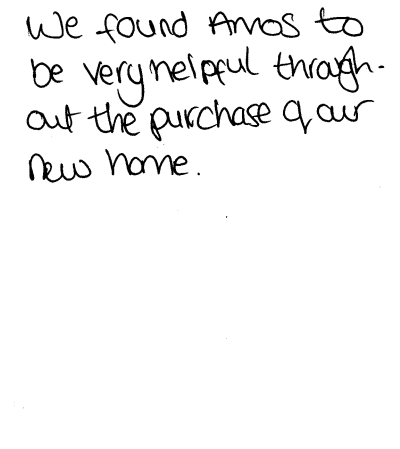 We found Amos to
be very helpful through-
out the purchase of our
new home.